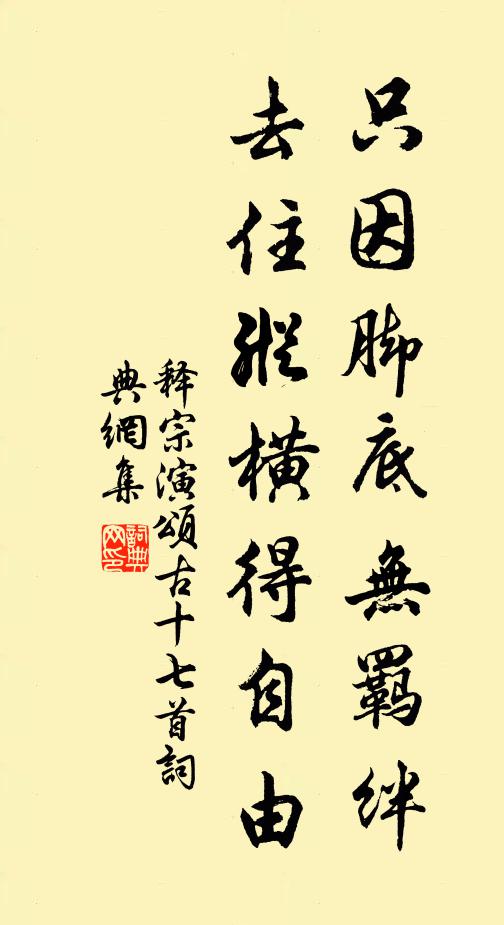 只因脚底無羈絆
去住縱橫得自由
释宗演頌古十七首詞
典網集
詞典
网印